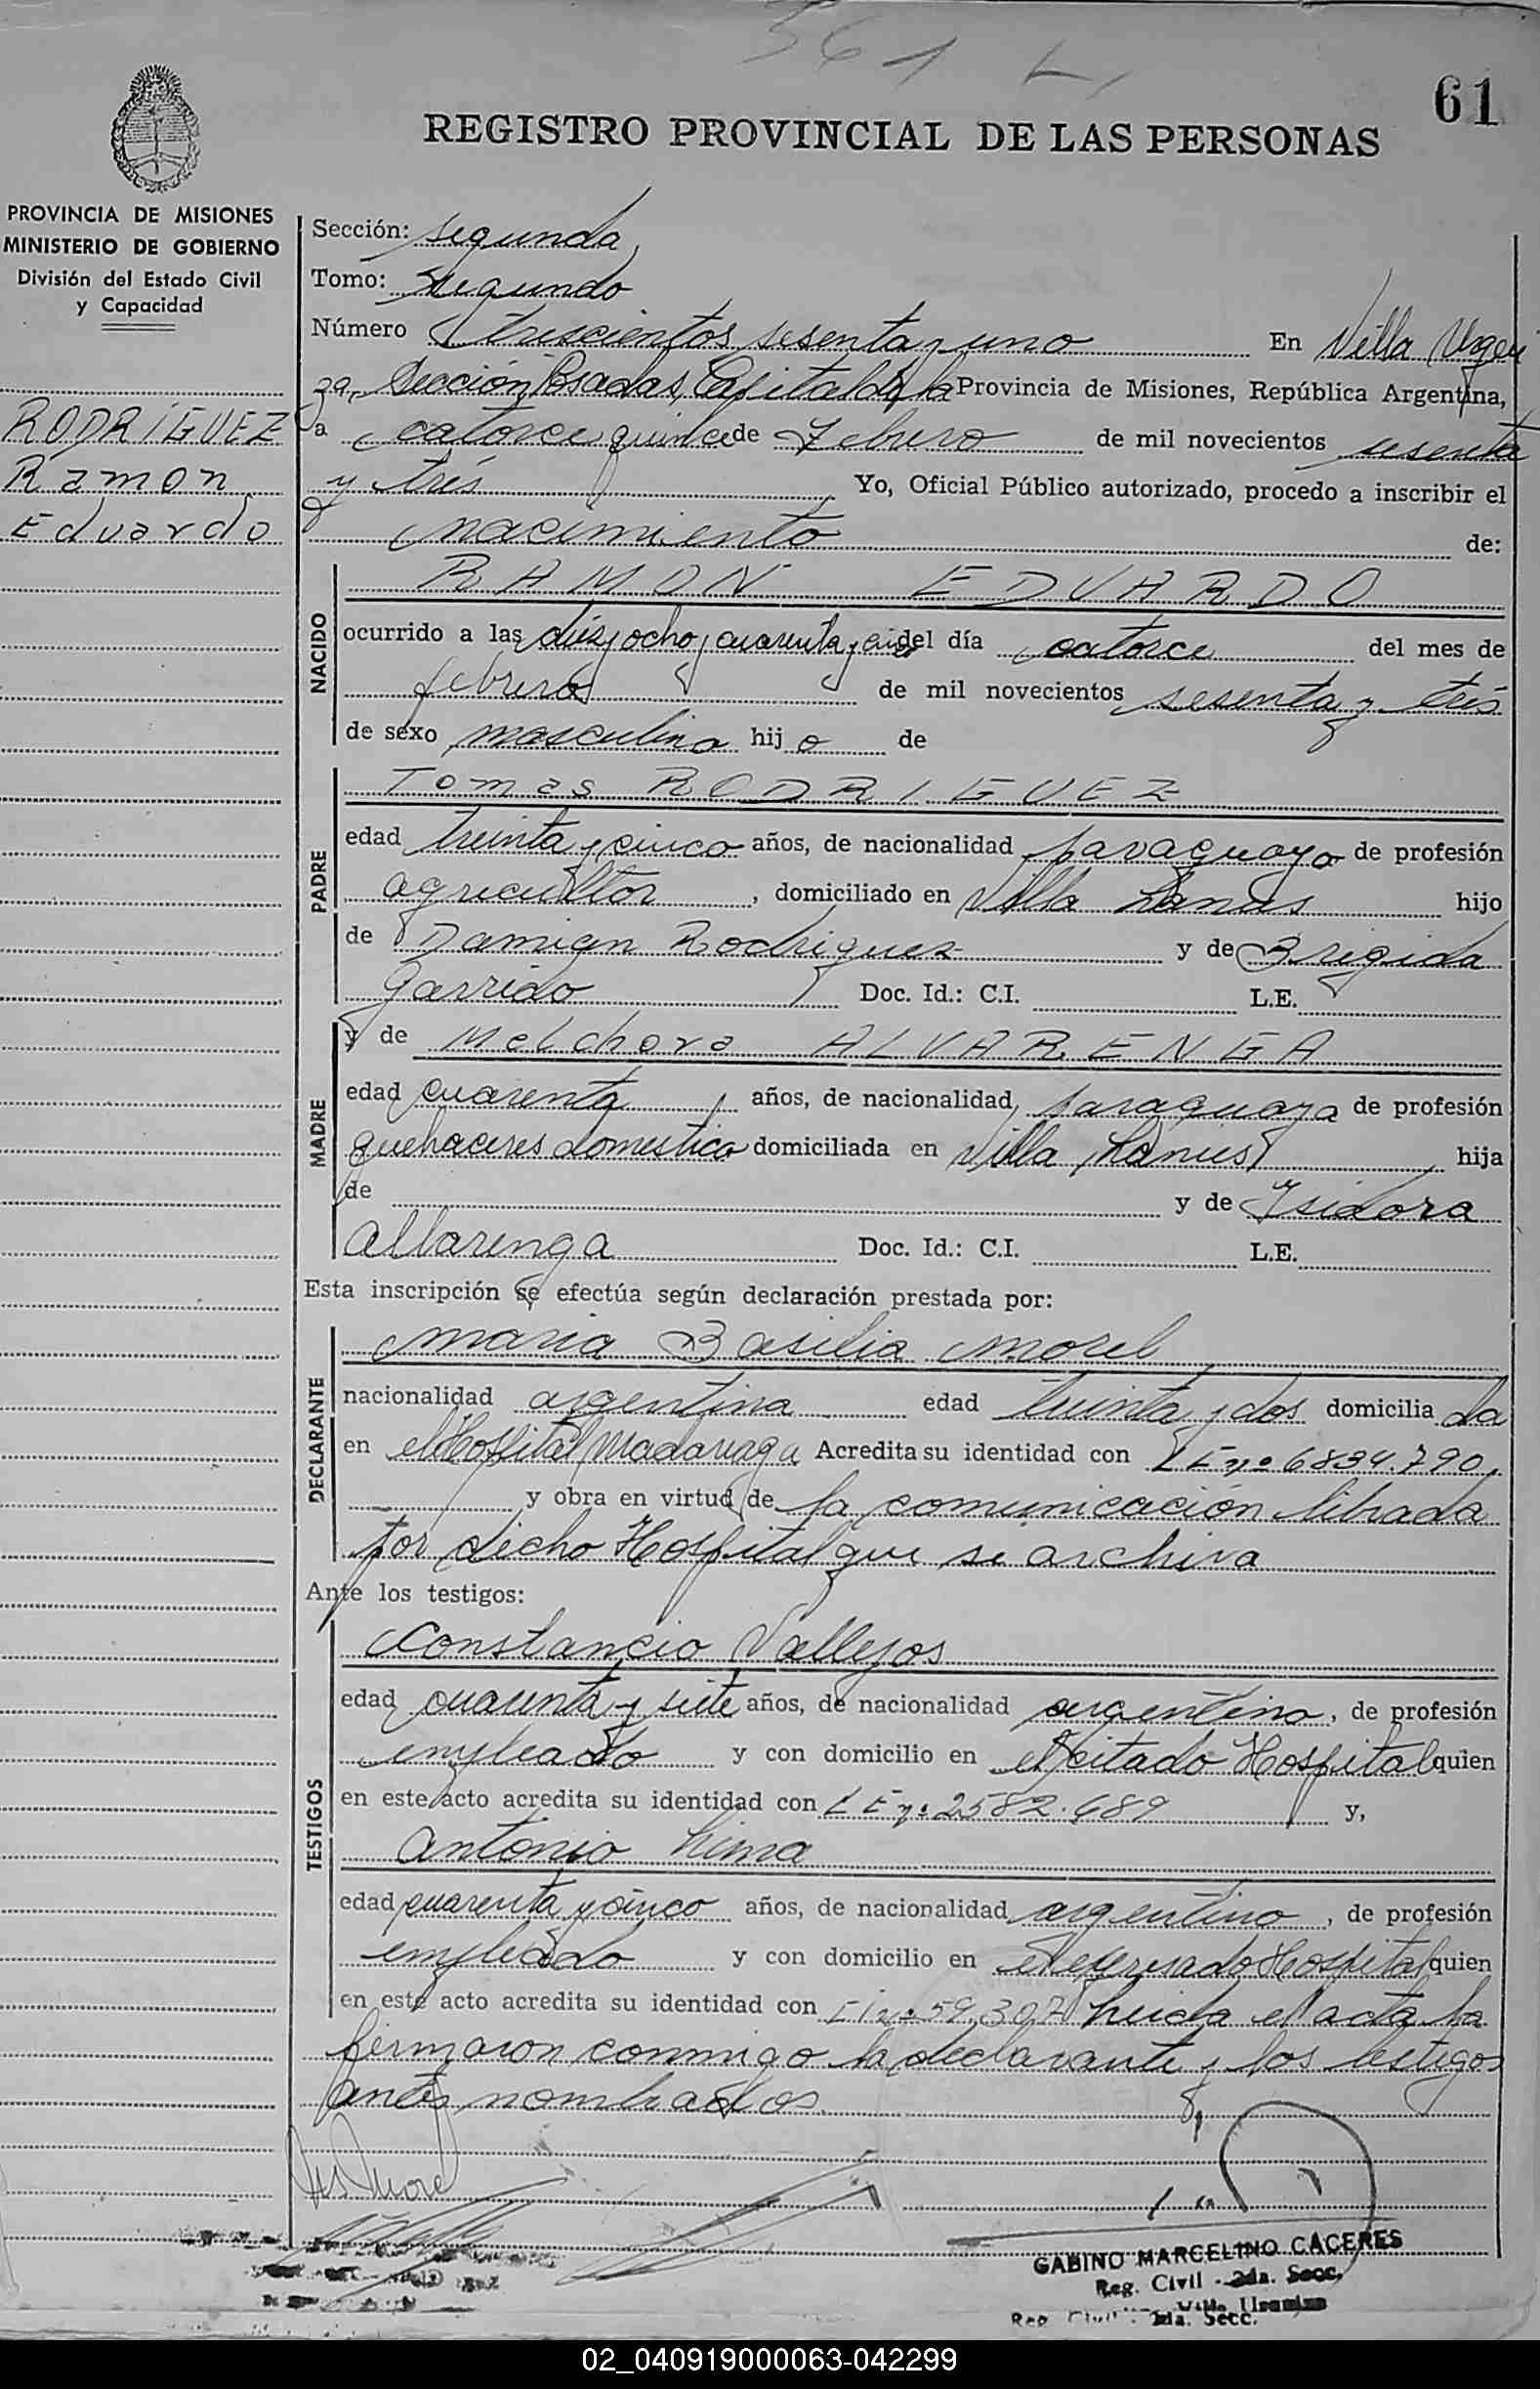 361 L
61
REGISTRO PROVINCIAL DE LAS PERSONAS
PROVINCIA DE MISIONES
MINISTERIO DE GOBIERNO
División del Estado Civil
y Capacidad
RODRÍGUEZ
Ramon
Eduardo
Sección: segunda
Tomo: segundo
Número trescientos sesenta y uno En Villa Urqui
za, Sección Posadas, Capital de la Provincia de Misiones, República Argentina,
a catorce quince de Febrero de mil novecientos sesenta
y trés Yo, Oficial Público autorizado, procedo a inscribir el
nacimiento de:
NACIDO
RAMON EDUARDO
ocurrido a las diez y ocho y cuarenta y del día catorce del mes de
febrero de mil novecientos sesenta y trés
de sexo masculino hijo de
PADRE
Tomas RODRIGUEZ
edad treinta y cinco años, de nacionalidad paraguayo de profesión
agricultor, domiciliado en Villa Lanús hijo
de Damian Rodriguez y de Brigida
Garrido Doc. Id.: C.I. L.E.
MADRE
y de Melchora ALVARENGA
edad cuarenta años, de nacionalidad paraguaya de profesión
quehaceres domestico domiciliada en Villa Lanús hija
de y de Isidora
Albarenga Doc. Id.: C.I. L.E.
Esta inscripción se efectúa según declaración prestada por:
DECLARANTE
Maria Basilia Morel
nacionalidad argentina edad treinta y dos domiciliada
en el Hospital Madariaga Acredita su identidad con L E nº 6834.790,
y obra en virtud de la comunicación librada
por dicho Hospital que se archiva
Ante los testigos:
TESTIGOS
Constancio Vallejos
edad cuarenta y siete años, de nacionalidad argentino, de profesión
empleado y con domicilio en el citado Hospital quien
en este acto acredita su identidad con L E nº 2582.689 y,
Antonio Lima
edad cuarenta y cinco años, de nacionalidad argentino, de profesión
empleado y con domicilio en el expresado Hospital quien
en este acto acredita su identidad con 59.307 Leida el acta la
firmaron conmigo la declarante y los testigos
antes nombrados.
Morel
GABINO MARCELINO CACERES
Reg. Civil - 2da. Secc.
Villa Urquiza
Reg. Civil 2da. Secc.
02_040919000063-042299